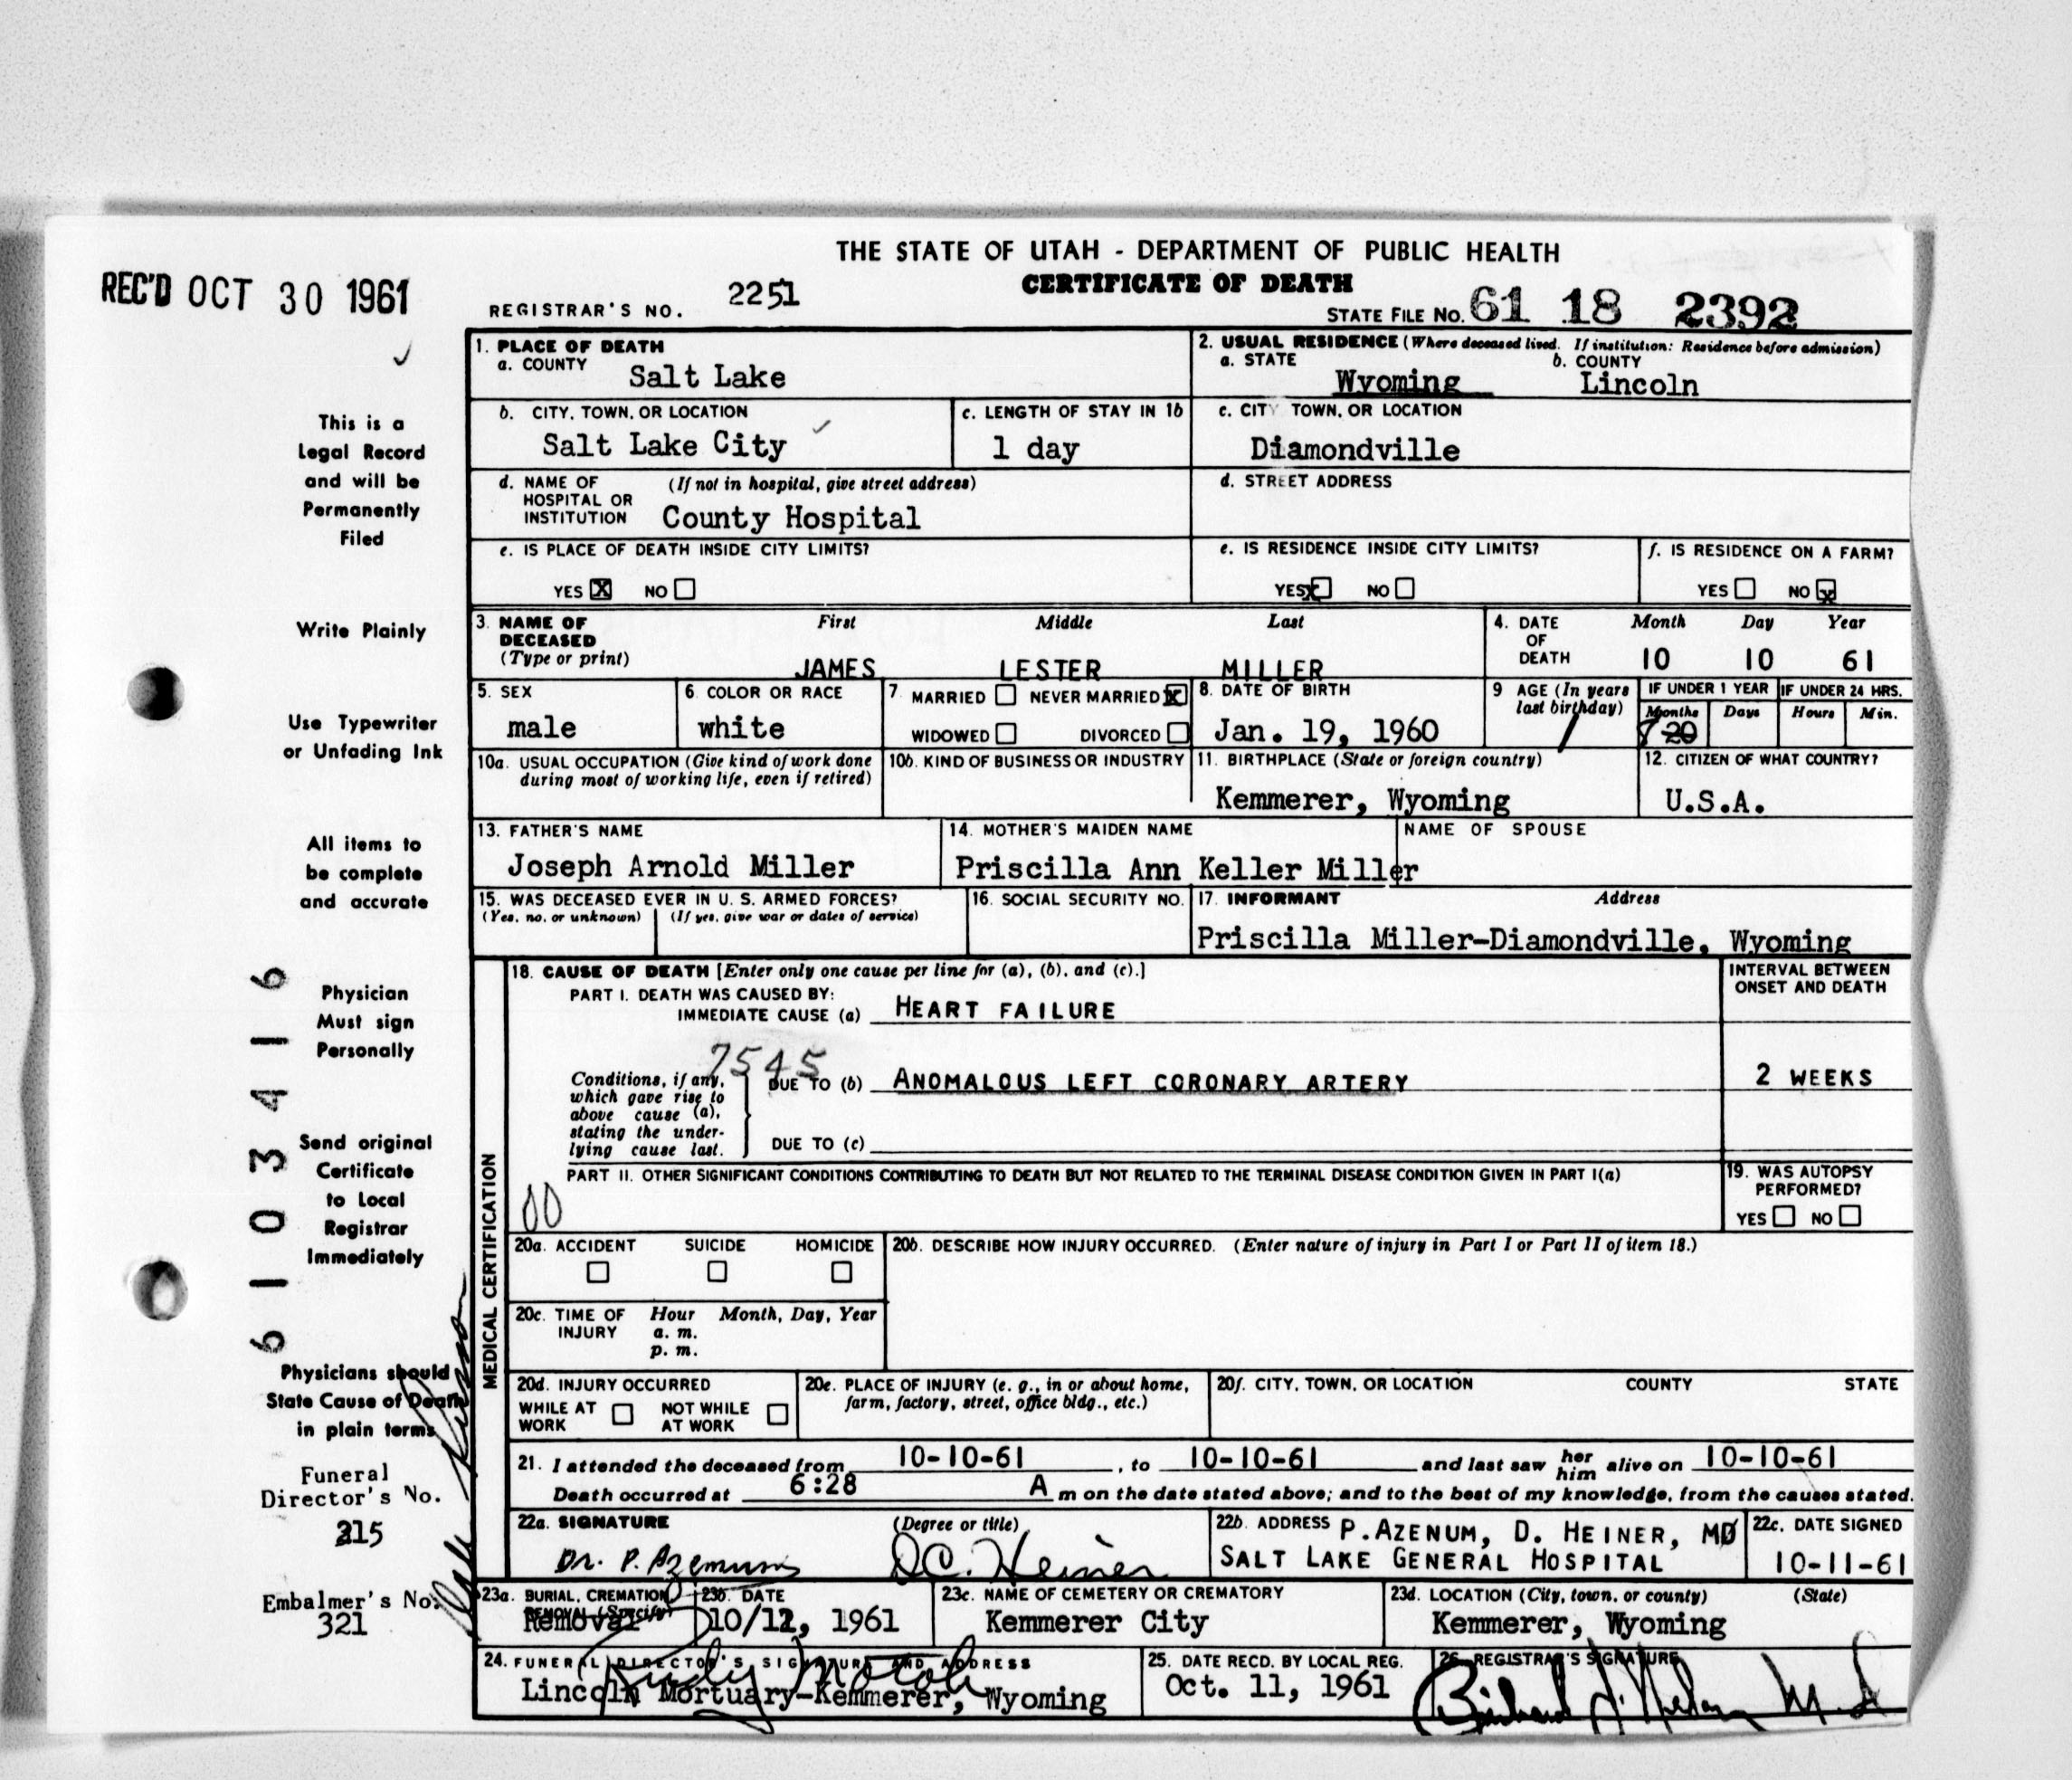 THE STATE OF UTAH - DEPARTMENT OF PUBLIC HEALTH
CERTIFICATE OF DEATH
REC'D OCT 30 1961
REGISTRAR'S NO. 2251
STATE FILE NO. 61 18 2392
This is a
Legal Record
and will be
Permanently
Filed
Write Plainly
Use Typewriter
or Unfading Ink
All items to
be complete
and accurate
Physician
Must sign
Personally
Send original
Certificate
to Local
Registrar
Immediately
Physicians should
State Cause of Death
in plain terms
Funeral
Director's No.
215
Embalmer's No.
321
6103416
1. PLACE OF DEATH
a. COUNTY Salt Lake
2. USUAL RESIDENCE (Where deceased lived. If institution: Residence before admission)
a. STATE Wyoming b. COUNTY Lincoln
b. CITY, TOWN, OR LOCATION
Salt Lake City
c. LENGTH OF STAY IN 1b
1 day
c. CITY TOWN, OR LOCATION
Diamondville
d. NAME OF (If not in hospital, give street address)
HOSPITAL OR
INSTITUTION County Hospital
d. STREET ADDRESS
e. IS PLACE OF DEATH INSIDE CITY LIMITS?
YES X NO
e. IS RESIDENCE INSIDE CITY LIMITS?
YES X NO
f. IS RESIDENCE ON A FARM?
YES NO X
3. NAME OF DECEASED (Type or print)
First Middle Last
JAMES LESTER MILLER
4. DATE OF DEATH
Month Day Year
10 10 61
5. SEX
male
6. COLOR OR RACE
white
7. MARRIED NEVER MARRIED X
WIDOWED DIVORCED
8. DATE OF BIRTH
Jan. 19, 1960
9 AGE (In years last birthday)
1
IF UNDER 1 YEAR IF UNDER 24 HRS.
Months Days Hours Min.
20
10a. USUAL OCCUPATION (Give kind of work done during most of working life, even if retired)
10b. KIND OF BUSINESS OR INDUSTRY
11. BIRTHPLACE (State or foreign country)
Kemmerer, Wyoming
12. CITIZEN OF WHAT COUNTRY?
U.S.A.
13. FATHER'S NAME
Joseph Arnold Miller
14. MOTHER'S MAIDEN NAME
Priscilla Ann Keller Miller
NAME OF SPOUSE
15. WAS DECEASED EVER IN U. S. ARMED FORCES?
(Yes, no, or unknown) (If yes, give war or dates of service)
16. SOCIAL SECURITY NO.
17. INFORMANT Address
Priscilla Miller-Diamondville, Wyoming
MEDICAL CERTIFICATION
18. CAUSE OF DEATH [Enter only one cause per line for (a), (b), and (c).]
PART I. DEATH WAS CAUSED BY:
IMMEDIATE CAUSE (a) HEART FAILURE
INTERVAL BETWEEN
ONSET AND DEATH
7545
Conditions, if any,
which gave rise to
above cause (a),
stating the under-
lying cause last.
DUE TO (b) ANOMALOUS LEFT CORONARY ARTERY
2 WEEKS
DUE TO (c)
PART II. OTHER SIGNIFICANT CONDITIONS CONTRIBUTING TO DEATH BUT NOT RELATED TO THE TERMINAL DISEASE CONDITION GIVEN IN PART I(a)
00
19. WAS AUTOPSY
PERFORMED?
YES NO
20a. ACCIDENT SUICIDE HOMICIDE
20b. DESCRIBE HOW INJURY OCCURRED. (Enter nature of injury in Part I or Part II of item 18.)
20c. TIME OF INJURY
Hour Month, Day, Year
a. m.
p. m.
20d. INJURY OCCURRED
WHILE AT WORK NOT WHILE AT WORK
20e. PLACE OF INJURY (e. g., in or about home, farm, factory, street, office bldg., etc.)
20f. CITY, TOWN, OR LOCATION COUNTY STATE
21. I attended the deceased from 10-10-61, to 10-10-61 and last saw her him alive on 10-10-61
Death occurred at 6:28 A m on the date stated above; and to the best of my knowledge, from the causes stated.
22a. SIGNATURE (Degree or title)
Dr. P. Azemum D C. Heiner
22b. ADDRESS P. AZENUM, D. HEINER, MD
SALT LAKE GENERAL HOSPITAL
22c. DATE SIGNED
10-11-61
23a. BURIAL, CREMATION
REMOVAL (Specify)
Removal
23b. DATE
10/12, 1961
23c. NAME OF CEMETERY OR CREMATORY
Kemmerer City
23d. LOCATION (City, town, or county) (State)
Kemmerer, Wyoming
24. FUNERAL DIRECTOR'S SIGNATURE AND ADDRESS
Lincoln Mortuary-Kemmerer, Wyoming
25. DATE RECD. BY LOCAL REG.
Oct. 11, 1961
26. REGISTRAR'S SIGNATURE